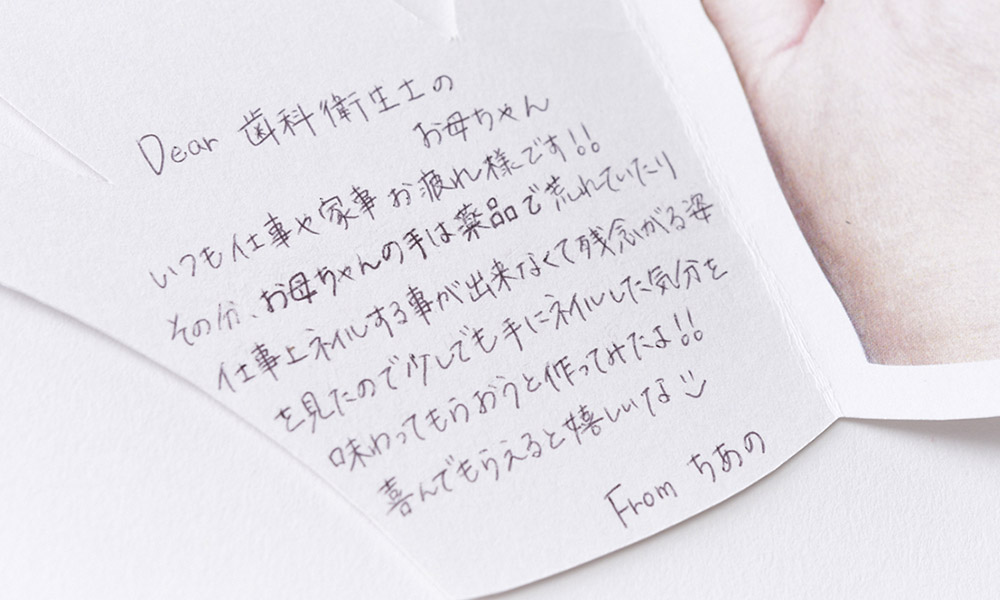 Dear 歯科衛生士の
お母ちゃん
いつも仕事や家事お疲れ様です!!
その分、お母ちゃんの手は薬品で荒れていたり
仕事上ネイルする事が出来なくて残念がる姿
を見たので少しでも手にネイルした気分を
味わってもらおうと作ってみたよ!!
喜んでもらえると嬉しいな
From ちあの